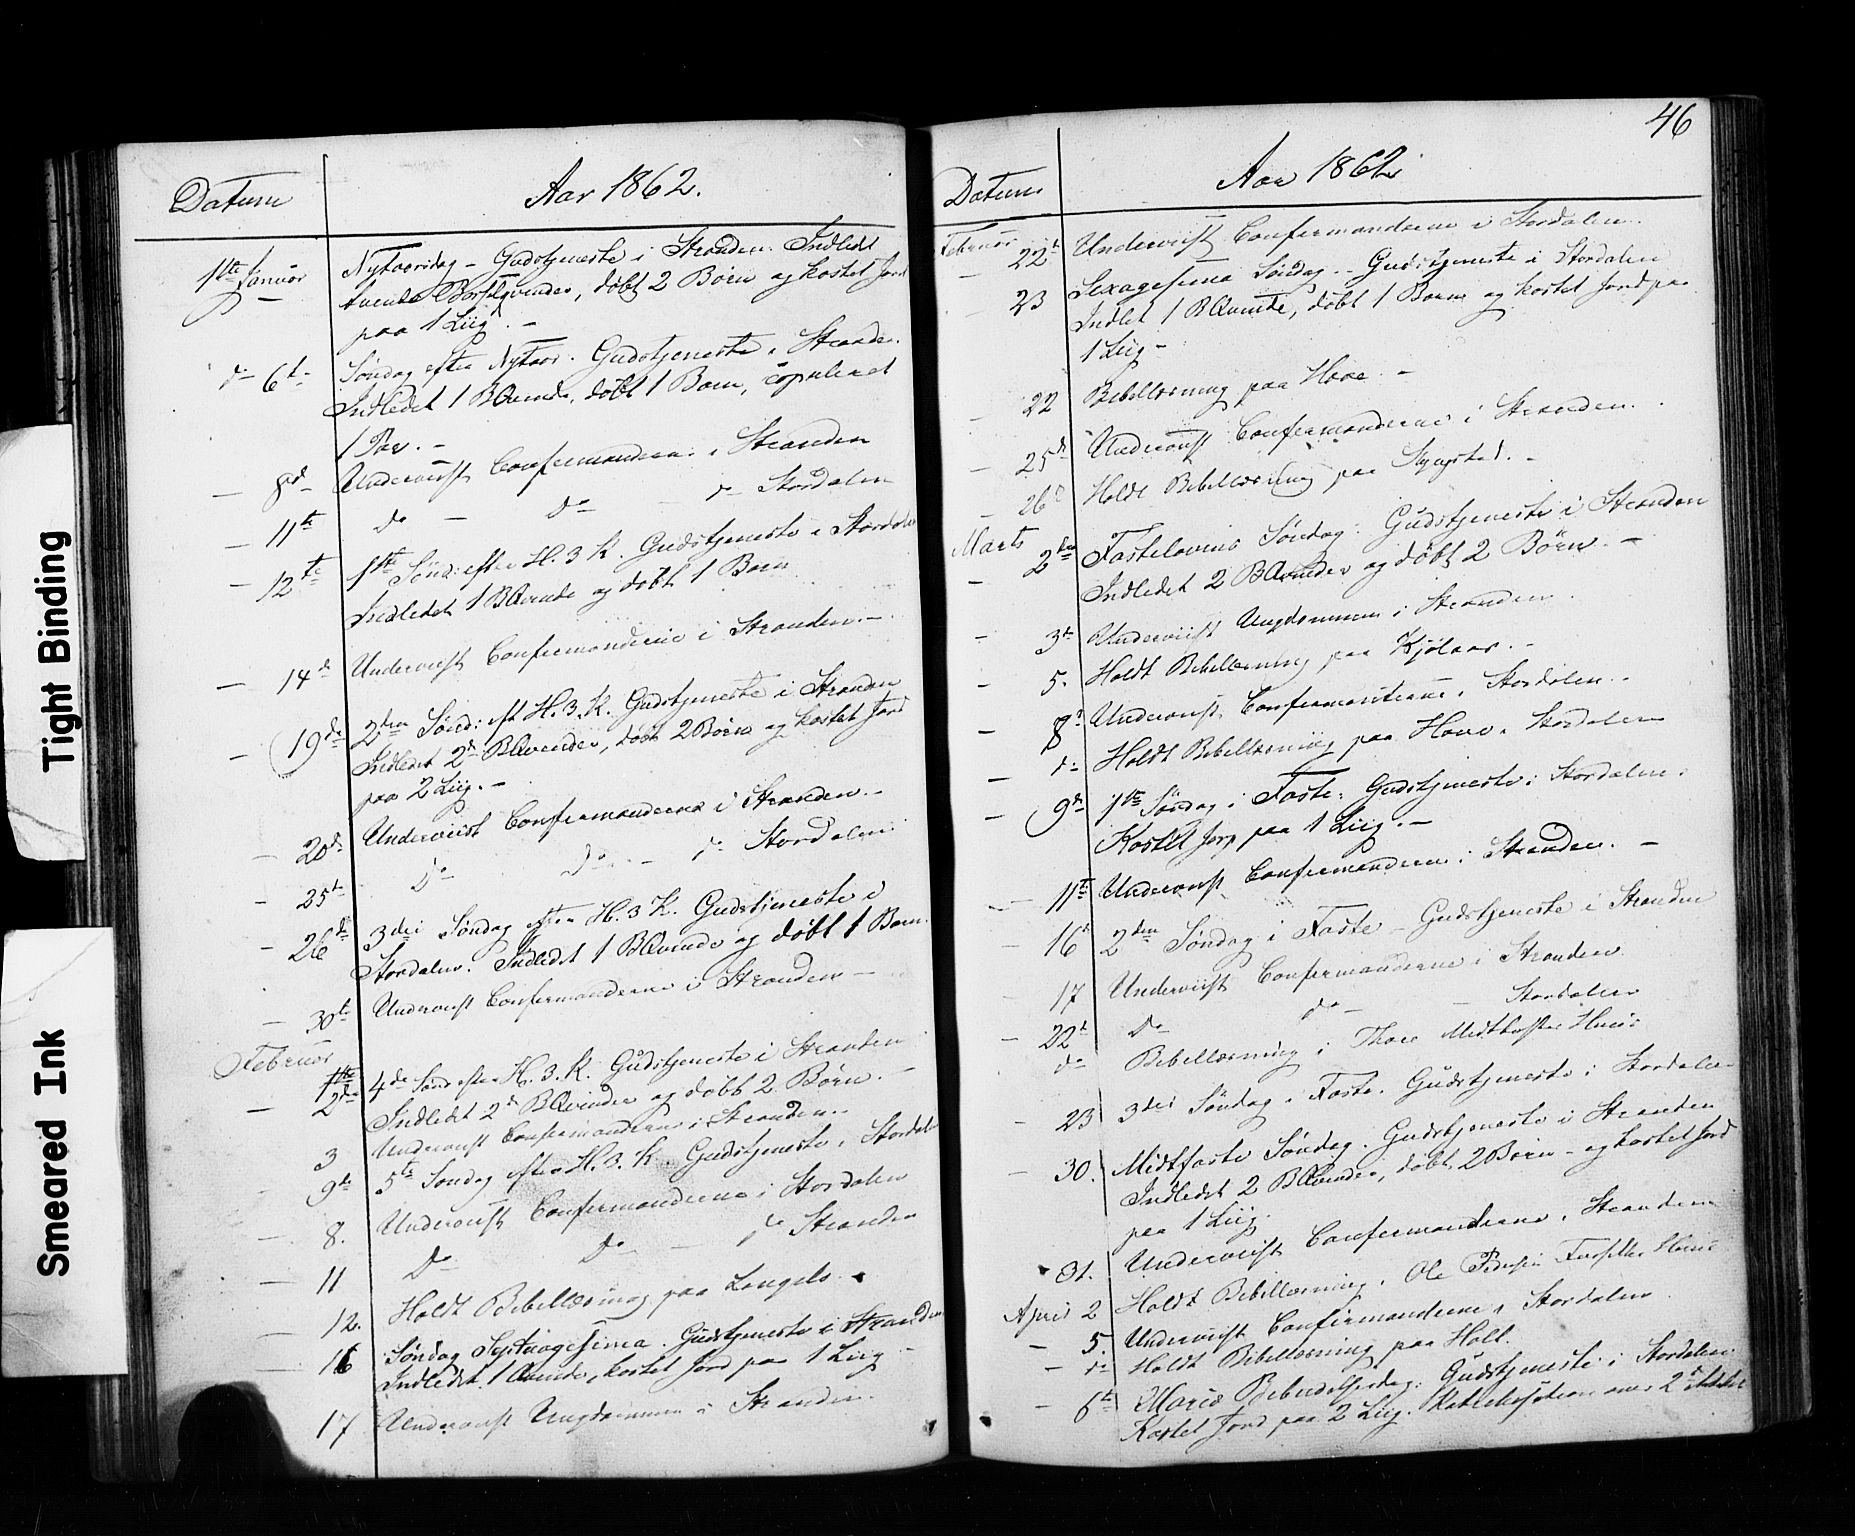 Tight Binding
Smeared Ink
Datum
Aar 1862.
1ste Januar Nytaarsdag - Gudstjeneste i Stranden. Indledt
Barselqvinder, døbt 2 Børn og kastet Jord
paa 1 Liig. -
do 6te Søndag efter Nytaar. Gudstjeneste i Stranden.
Indledet 1 BQvinde, døbt 1 Barn, copuleret
1 Par. -
- 8d Underviist Confirmanderne i Stranden
- 11te do - do - do Stordalen
- 12te 1ste Sønd: efter H. 3 K. Gudstjeneste i Stordalen
Indledet 1 BQvinde og døbt 1 Barn
- 14d Underviist Confirmanderne i Stranden. -
- 19de 2den Sønd: eft H. 3. K. Gudstjeneste i Stranden
Indledet 2d BQvinder, døbt 2 Børn og kastet Jord
paa 2 Liig. -
- 20d Underviist Confirmanderne i Stranden. -
- 25t Do Do - do Stordalen
- 26d 3die Søndag efter H. 3 K. Gudstjeneste i
Stordalen. Indledet 1 BQvinde og døbt 1 Barn.
- 30te Underviist Confirmanderne i Stranden -
Februar
- 2den 4de Sønd efter H. 3. K. Gudstjeneste i Stranden
Indledet 2d BQvinder og døbt 2 Børn. -
3 Underviist Confirmanderne i Stranden. -
- 9de 5te Søndag efter H. 3. K. Gudstjeneste i Stordal
- 8. Underviist Confirmanderne i Stordalen
- 11 Do Do - do Stranden
- 12. Holdt Bibellæsning paa Langelo. -
- 16 Søndag Septuagesima. Gudstjeneste i Stranden
Indledet 1 Qvinde, kastet Jord paa 1 Liig -
17 Underviist Ungdommen i Stranden.
46
Datum
Aar 1862
Februar
- 22t Underviist Confirmanderne i Stordalen.
23 Sexagesima Søndag. - Gudstjeneste i Stordalen
Indlet 1 BQvinde, døbt 1 Barn og kastet Jord paa
1 Liig -
- 22 Bibellæsning paa Hove. -
- 25d Underviist Confirmanderne i Stranden.
- 26d Holdt Bibellæsning paa -
Marts
- 2den Fastelavens Søndag. Gudstjeneste i Stranden
Indledet 2 BQvinder og døbt 2 Børn. -
- 3t Underviist Ungdommen i Stranden.
- 5. Holdt Bibellæsning paa -
- 8d Underviist Confirmanterne i Stordalen. -
- do Holdt Bibellæsning paa Hove i Stordalen
- 9de 1ste Søndag i Faste. Gudstjeneste i Stordalen.
Kastet Jord paa 1 Liig. -
- 11te Underviist Confirmanderne i Stranden. -
- 16t 2den Søndag i Faste - Gudstjeneste i Stranden
- 17 Underviist Confirmanderne i Stranden
- 22t Do do - - Stordalen
do Bibellæsning i Huus
- 23 3die Søndag i Faste. Gudstjeneste i Stordalen
- 30. Midtfaste Søndag. Gudstjeneste i Stranden
Indledet 2 BQvinder, døbt 2 Børn - og kastet Jord
paa 1 Liig.
31. Underviist Confirmanderne i Stranden
April 2 Holdt Bibellæsning i Ole Huus
- 5. Underviist Confirmanderne i Stordalen.
- do Holdt Bibellæsning paa Holt.
- 6te Mariæ Bebudelsesdag. Gudstjeneste i Stordalen
Kastet Jord paa 2 Liig. Katekisation over